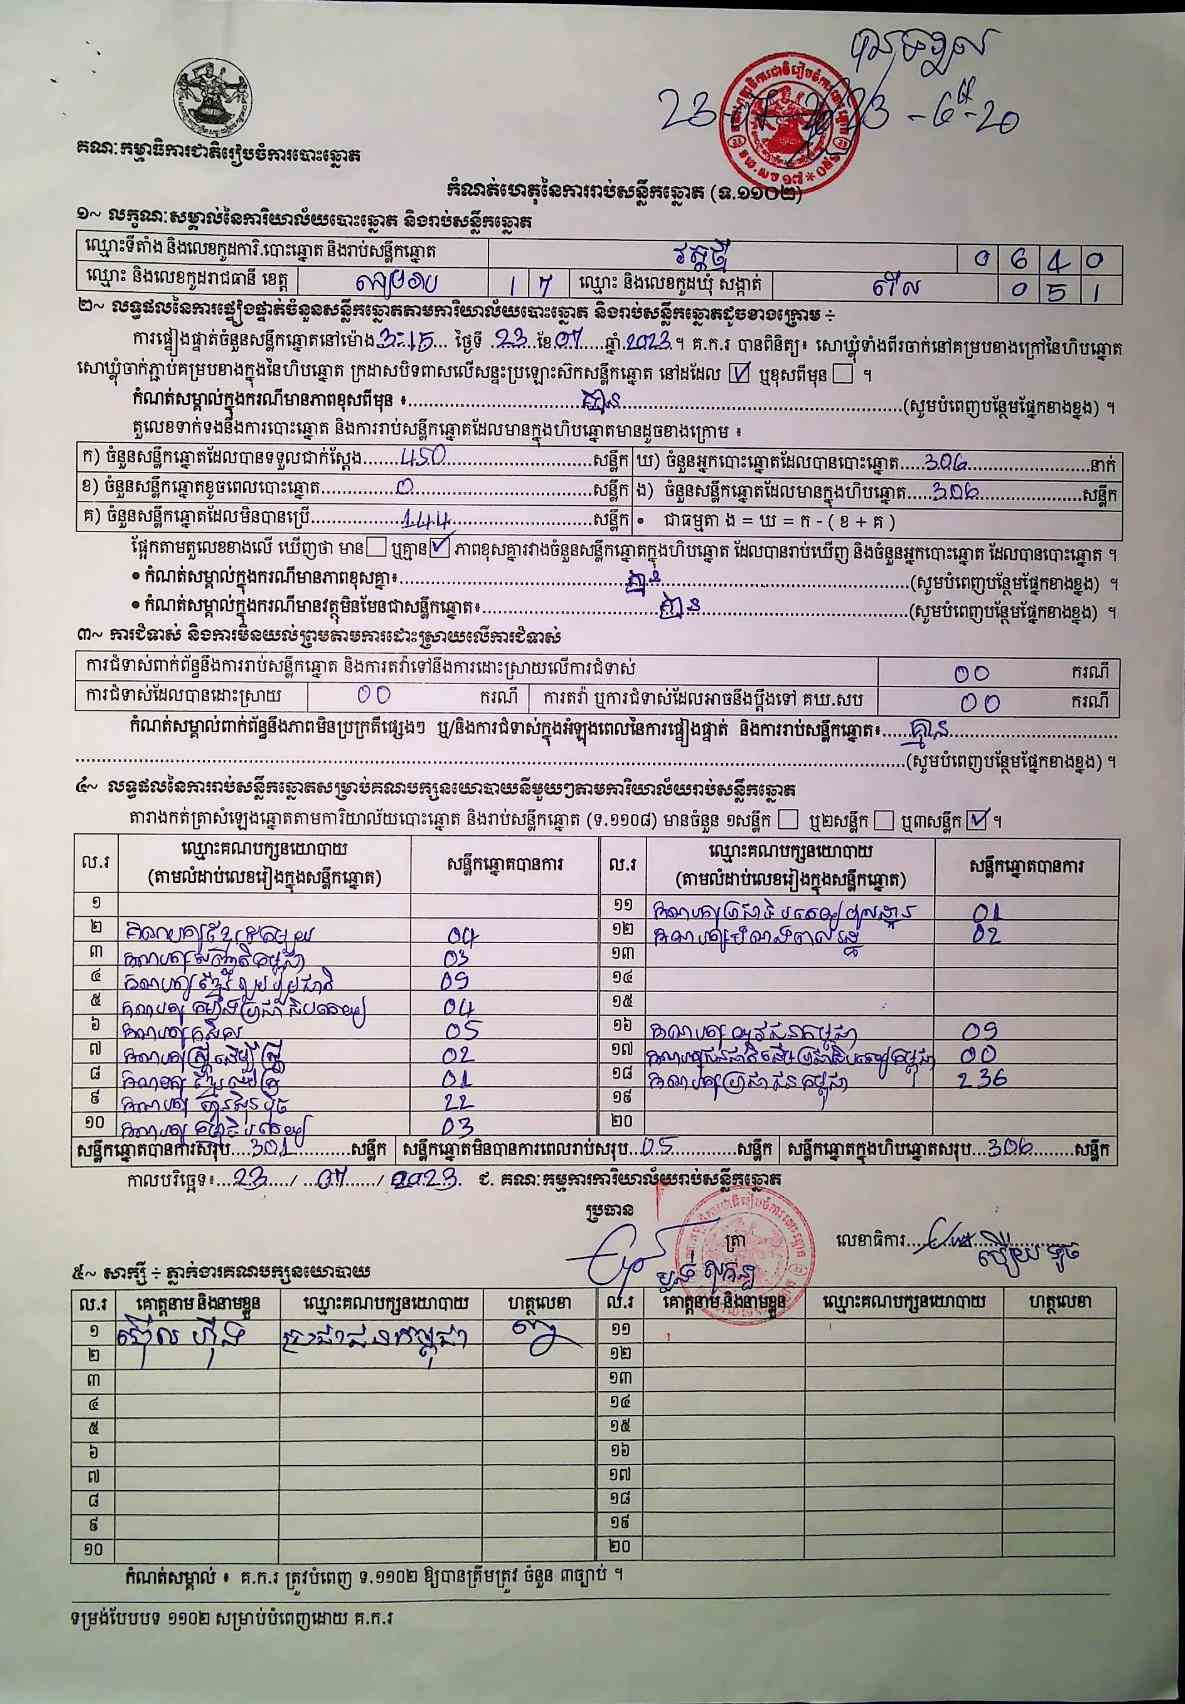 23-07-2023 - 6 - 20
គណៈកម្មាធិការជាតិរៀបចំការបោះឆ្នោត
កំណត់ហេតុនៃការរាប់សន្លឹកឆ្នោត (ទ.១១០២)
១~ លក្ខណៈសម្គាល់នៃការិយាល័យបោះឆ្នោត និងរាប់សន្លឹកឆ្នោត
ឈ្មោះទីតាំង និងលេខកូដការិ.បោះឆ្នោត និងរាប់សន្លឹកឆ្នោត វត្តថ្មី 0 6 4 0
ឈ្មោះ និងលេខកូដរាជធានី ខេត្ត សៀមរាប 1 7 ឈ្មោះ និងលេខកូដឃុំ សង្កាត់ 0 5 1
២~ លទ្ធផលនៃការផ្ទៀងផ្ទាត់ចំនួនសន្លឹកឆ្នោតតាមការិយាល័យបោះឆ្នោត និងរាប់សន្លឹកឆ្នោតដូចខាងក្រោម ÷
ការផ្ទៀងផ្ទាត់ចំនួនសន្លឹកឆ្នោតនៅម៉ោង 3:15 ថ្ងៃទី 23 ខែ 07 ឆ្នាំ 2023 ។ គ.ក.រ បានពិនិត្យ៖ សោឃ្លុំទាំងពីរចាក់នៅគម្របខាងក្រៅនៃហិបឆ្នោត
សោឃ្លុំចាក់ភ្ជាប់គម្របខាងក្នុងនៃហិបឆ្នោត ក្រដាសបិទពាសលើសន្ទះប្រឡោះសិកសន្លឹកឆ្នោត នៅដដែល ☑ ឬខុសពីមុន ☐ ។
កំណត់សម្គាល់ក្នុងករណីមានភាពខុសពីមុន ៖ គ្មាន (សូមបំពេញបន្ថែមផ្នែកខាងខ្នង) ។
តួលេខទាក់ទងនឹងការបោះឆ្នោត និងការរាប់សន្លឹកឆ្នោតដែលមានក្នុងហិបឆ្នោតមានដូចខាងក្រោម ៖
ក) ចំនួនសន្លឹកឆ្នោតដែលបានទទួលជាក់ស្តែង 450 សន្លឹក ឃ) ចំនួនអ្នកបោះឆ្នោតដែលបានបោះឆ្នោត 306 នាក់
ខ) ចំនួនសន្លឹកឆ្នោតខូចពេលបោះឆ្នោត 0 សន្លឹក ង) ចំនួនសន្លឹកឆ្នោតដែលមានក្នុងហិបឆ្នោត 306 សន្លឹក
គ) ចំនួនសន្លឹកឆ្នោតដែលមិនបានប្រើ 144 សន្លឹក • ជាធម្មតា ង = ឃ = ក - ( ខ + គ )
ផ្អែកតាមតួលេខខាងលើ ឃើញថា មាន ☐ ឬគ្មាន ☑ ភាពខុសគ្នារវាងចំនួនសន្លឹកឆ្នោតក្នុងហិបឆ្នោត ដែលបានរាប់ឃើញ និងចំនួនអ្នកបោះឆ្នោត ដែលបានបោះឆ្នោត ។
• កំណត់សម្គាល់ក្នុងករណីមានភាពខុសគ្នា៖ គ្មាន (សូមបំពេញបន្ថែមផ្នែកខាងខ្នង) ។
• កំណត់សម្គាល់ក្នុងករណីមានវត្ថុមិនមែនជាសន្លឹកឆ្នោត៖ គ្មាន (សូមបំពេញបន្ថែមផ្នែកខាងខ្នង) ។
៣~ ការជំទាស់ និងការមិនយល់ព្រមតាមការដោះស្រាយលើការជំទាស់
ការជំទាស់ពាក់ព័ន្ធនឹងការរាប់សន្លឹកឆ្នោត និងការតវ៉ាទៅនឹងការដោះស្រាយលើការជំទាស់ 00 ករណី
ការជំទាស់ដែលបានដោះស្រាយ 00 ករណី ការតវ៉ា ឬការជំទាស់ដែលអាចនឹងប្តឹងទៅ គឃ.សប 00 ករណី
កំណត់សម្គាល់ពាក់ព័ន្ធនឹងភាពមិនប្រក្រតីផ្សេងៗ ឬ/និងការជំទាស់ក្នុងអំឡុងពេលនៃការផ្ទៀងផ្ទាត់ និងការរាប់សន្លឹកឆ្នោត៖ គ្មាន
(សូមបំពេញបន្ថែមផ្នែកខាងខ្នង) ។
៤~ លទ្ធផលនៃការរាប់សន្លឹកឆ្នោតសម្រាប់គណបក្សនយោបាយនីមួយៗតាមការិយាល័យរាប់សន្លឹកឆ្នោត
តារាងកត់ត្រាសំឡេងឆ្នោតតាមការិយាល័យបោះឆ្នោត និងរាប់សន្លឹកឆ្នោត (ទ.១១០៨) មានចំនួន ១សន្លឹក ☐ ឬ២សន្លឹក ☐ ឬ៣សន្លឹក ☑ ។
ល.រ ឈ្មោះគណបក្សនយោបាយ (តាមលំដាប់លេខរៀងក្នុងសន្លឹកឆ្នោត) សន្លឹកឆ្នោតបានការ ល.រ ឈ្មោះគណបក្សនយោបាយ (តាមលំដាប់លេខរៀងក្នុងសន្លឹកឆ្នោត) សន្លឹកឆ្នោតបានការ
១ ១១ គណបក្សប្រជាធិបតេយ្យមូលដ្ឋាន 01
២ គណបក្សខ្មែរតែមួយ 04 ១២ 02
៣ គណបក្សសញ្ជាតិកម្ពុជា 03 ១៣
៤ គណបក្សខ្មែររួបរួមជាតិ 09 ១៤
៥ គណបក្សកម្លាំងប្រជាធិបតេយ្យ 04 ១៥
៦ គណបក្សកសិករ 05 ១៦ គណបក្សយុវជនកម្ពុជា 09
៧ គណបក្សស្ត្រីដើម្បីស្ត្រី 02 ១៧ គណបក្សជនជាតិដើមប្រជាធិបតេយ្យកម្ពុជា 00
៨ គណបក្ស 01 ១៨ គណបក្សប្រជាជនកម្ពុជា 236
៩ គណបក្ស ហ៊្វុនស៊ិនប៉ិច 22 ១៩
១០ គណបក្សធម្មាធិបតេយ្យ 03 ២០
សន្លឹកឆ្នោតបានការសរុប 301 សន្លឹក សន្លឹកឆ្នោតមិនបានការពេលរាប់សរុប 05 សន្លឹក សន្លឹកឆ្នោតក្នុងហិបឆ្នោតសរុប 306 សន្លឹក
កាលបរិច្ឆេទ៖ 23 / 07 / 2023 ជ. គណៈកម្មការការិយាល័យរាប់សន្លឹកឆ្នោត
ប្រធាន
ត្រា លេខាធិការ
៥~ សាក្សី ÷ ភ្នាក់ងារគណបក្សនយោបាយ
ល.រ គោត្តនាម និងនាមខ្លួន ឈ្មោះគណបក្សនយោបាយ ហត្ថលេខា ល.រ គោត្តនាម និងនាមខ្លួន ឈ្មោះគណបក្សនយោបាយ ហត្ថលេខា
១ ប្រជាជនកម្ពុជា ១១
២ ១២
៣ ១៣
៤ ១៤
៥ ១៥
៦ ១៦
៧ ១៧
៨ ១៨
៩ ១៩
១០ ២០
កំណត់សម្គាល់ ៖ គ.ក.រ ត្រូវបំពេញ ទ.១១០២ ឱ្យបានត្រឹមត្រូវ ចំនួន ៣ច្បាប់ ។
ទម្រង់បែបបទ ១១០២ សម្រាប់បំពេញដោយ គ.ក.រ